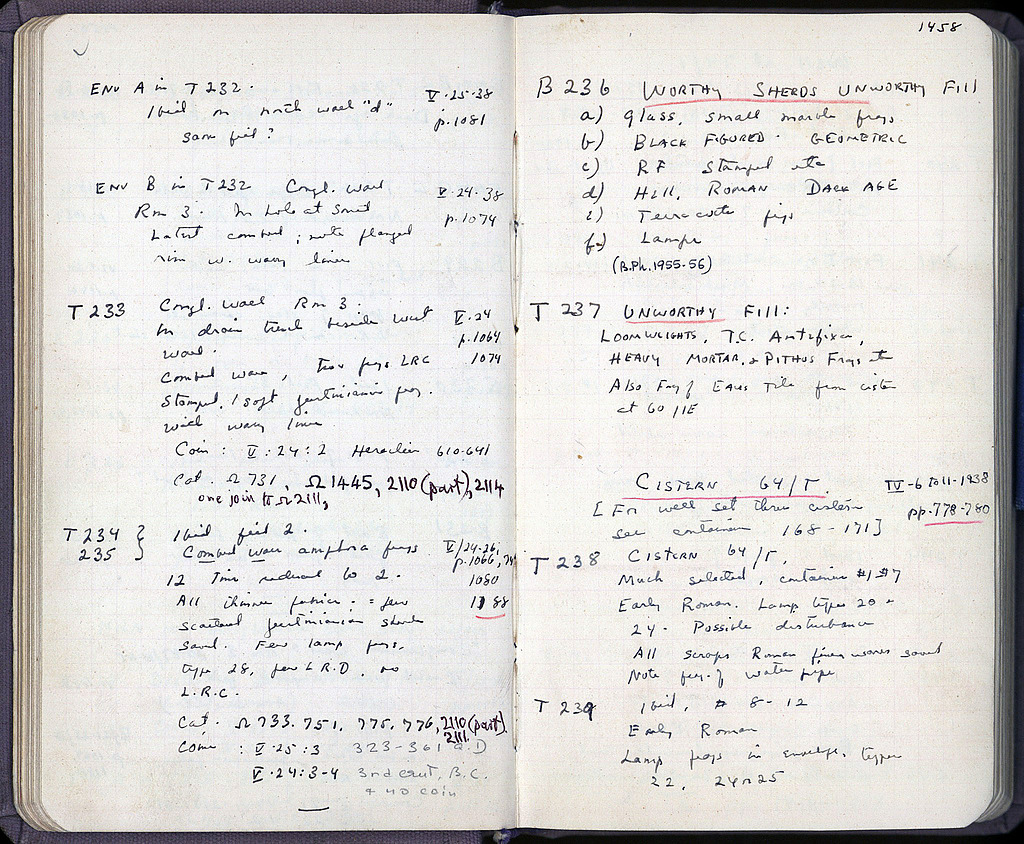 ENV A in T 232.
Ibid on north wall "d" V·25·38
same fill? p.1081
ENV B in T 232 Congl. wall V·24·38
Rm 3. In hole at South p.1074
Latest combed; note flanged
rim w. wavy lines
T 233 Congl. wall Rm 3.
In drain trench beside west V·24
wall. p.1064
Combed ware, two frgs LRC 1074
Stamped, 1 soft Justinianic frg.
with wavy line
Coin: V:24:2 Heraclius 610-641
Cat. Ω 731, Ω 1445, 2110 (part), 2114
one join to Ω 2111,
T 234 } Ibid fill 2.
235 } Combed ware amphora frgs V/24-26;
p.1066, 74
12 Tins reduced to 2. 1080
All thinner fabric; = few 1188
scattered Justinianic sherds
saved. Few lamp frgs,
type 28, few L.R.D. no
L.R.C.
Cat. Ω 733. 751. 775. 776, 2110 (part).
2111.
Coins: V·25:3 323-361 A.D
V·24:3-4 3rd cent. B.C.
+ no coin
1458
B 236 WORTHY SHERDS UNWORTHY FILL
a) glass, small marble frags
b) BLACK FIGURED · GEOMETRIC
c) RF Stamped etc
d) Hell, ROMAN DARK AGE
e) Terracotta figs
f) Lamps
(B.Ph. 1955-56)
T 237 UNWORTHY FILL:
LOOMWEIGHTS, T.C. Antefixes,
HEAVY MORTAR, & PITHOS Frags etc
Also Frg of EAVES TILE from cistern
at 60/ΙΕ
CISTERN 64/Γ. IV-6 to 11-1938
[For well set three cistern pp.778-780
see containers 168-171]
T 238 CISTERN 64/Γ.
Much selected, container #1 #7
Early Roman. Lamp types 20 &
24. Possible disturbance
All scraps Roman finer wares saved
Note frg. of water pipe
T 239 Ibid, # 8-12
Early Roman
Lamp frags in envelope, types
22, 24 or 25